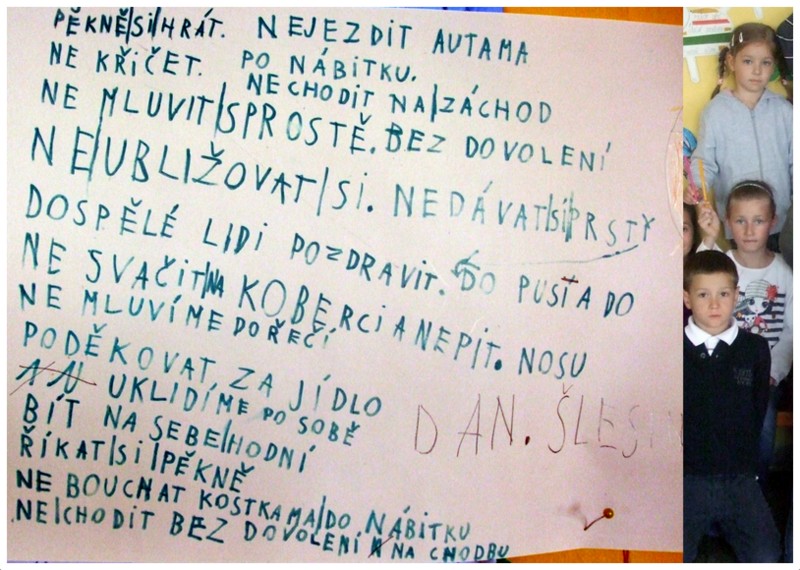 PĚKNĚ|SI|HRÁT. NEJEZDIT AUTAMA
NE KŘIČET. PO NÁBITKU.
NECHODIT NA|ZÁCHOD
NE MLUVIT|SPROSTĚ. BEZ DOVOLENÍ
NE|UBLIŽOVAT|SI. NEDÁVAT|SI|PRSTY
DOSPĚLÉ LIDI POZDRAVIT. DO PUSŤA DO
NE SVAČIT|NA KOBERCI A NEPÍT. NOSU
NE MLUVÍME DO ŘEČÍ
PODĚKOVAT ZA JÍDLO
AN UKLIDÍME PO SOBĚ
BÍT NA SEBE|HODNÍ
ŘÍKAT|SI|PĚKNĚ
NE BOUCHAT KOSTKAMA|DO NÁBITKU
NE|CHODIT BEZ DOVOLENÍ NA CHODBU
DAN.